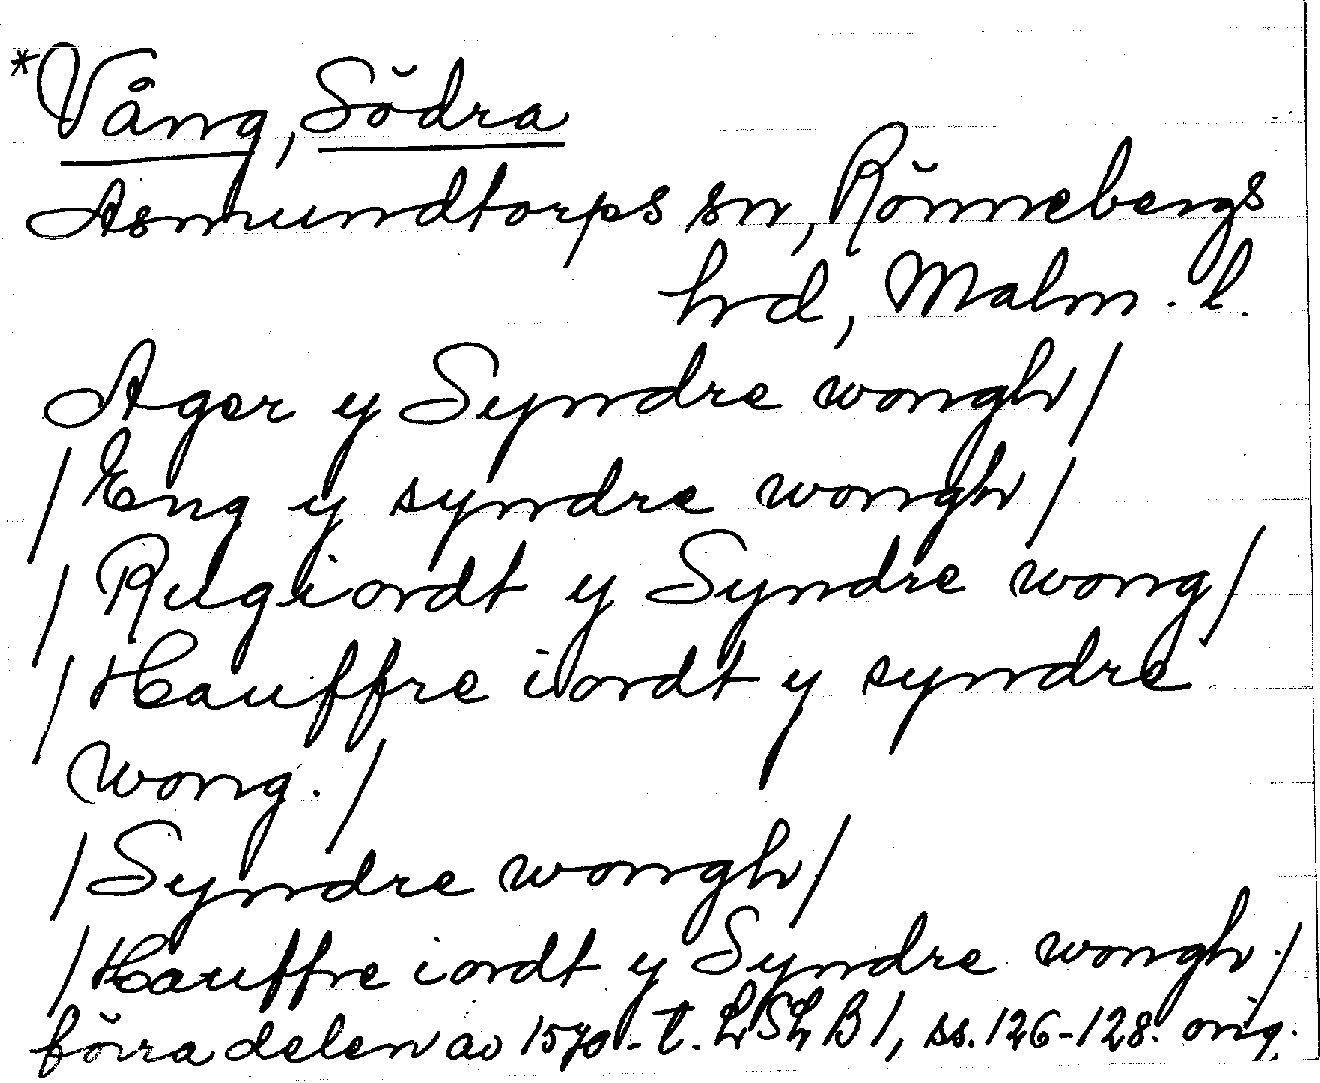 *Vång, Södra
Asmundtorps sn, Rönnebergs
hrd, Malm. l.
Ager y Syndre wongh/
/Eng y syndre wongh/
/Rugiordt y Syndre wong/
/Hauffre iordt y syndre
wong./
/Syndre wongh/
/Hauffre iordt y Syndre wongh./
förra delen av 1570-t. LSLB1, ss. 126-128. orig.